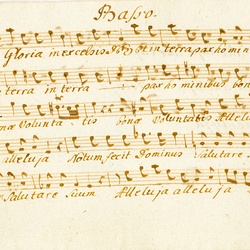 Basso.
Gloria in excelsis Deo et in terra pax homini
terra in terra pax hominibus bon
onæ Volunta tis bonæ Voluntatis Alleluj
alleluja Notum fecit Dominus Salutare
Salutare suum Alleluja alleluja